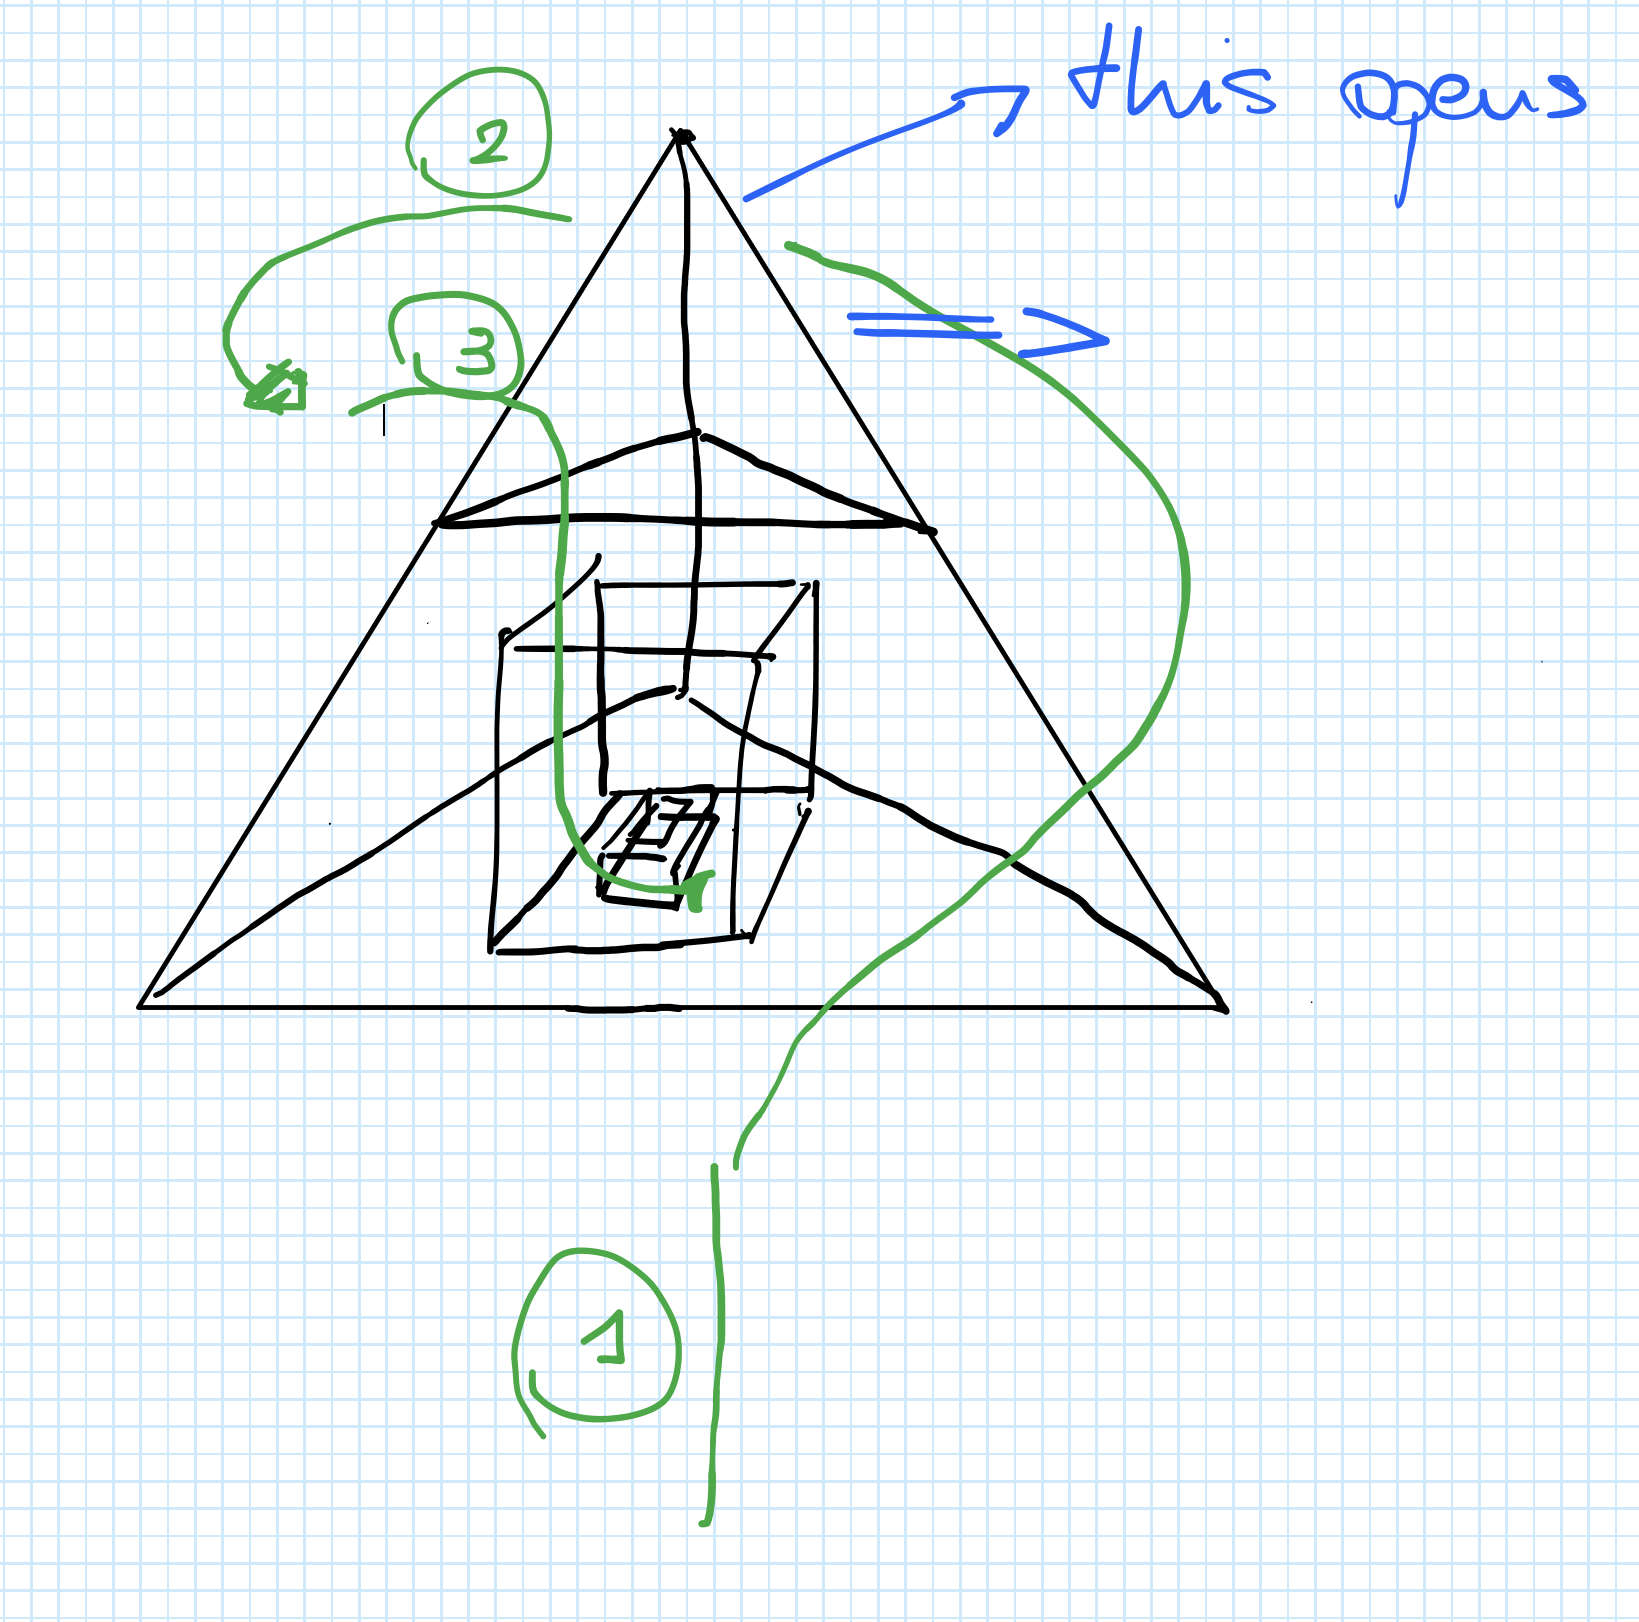 this opens
2
3
1